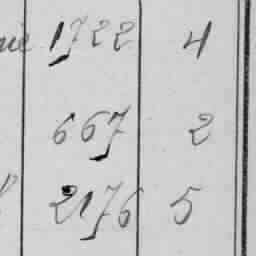 1722 4
667 2
2176 5